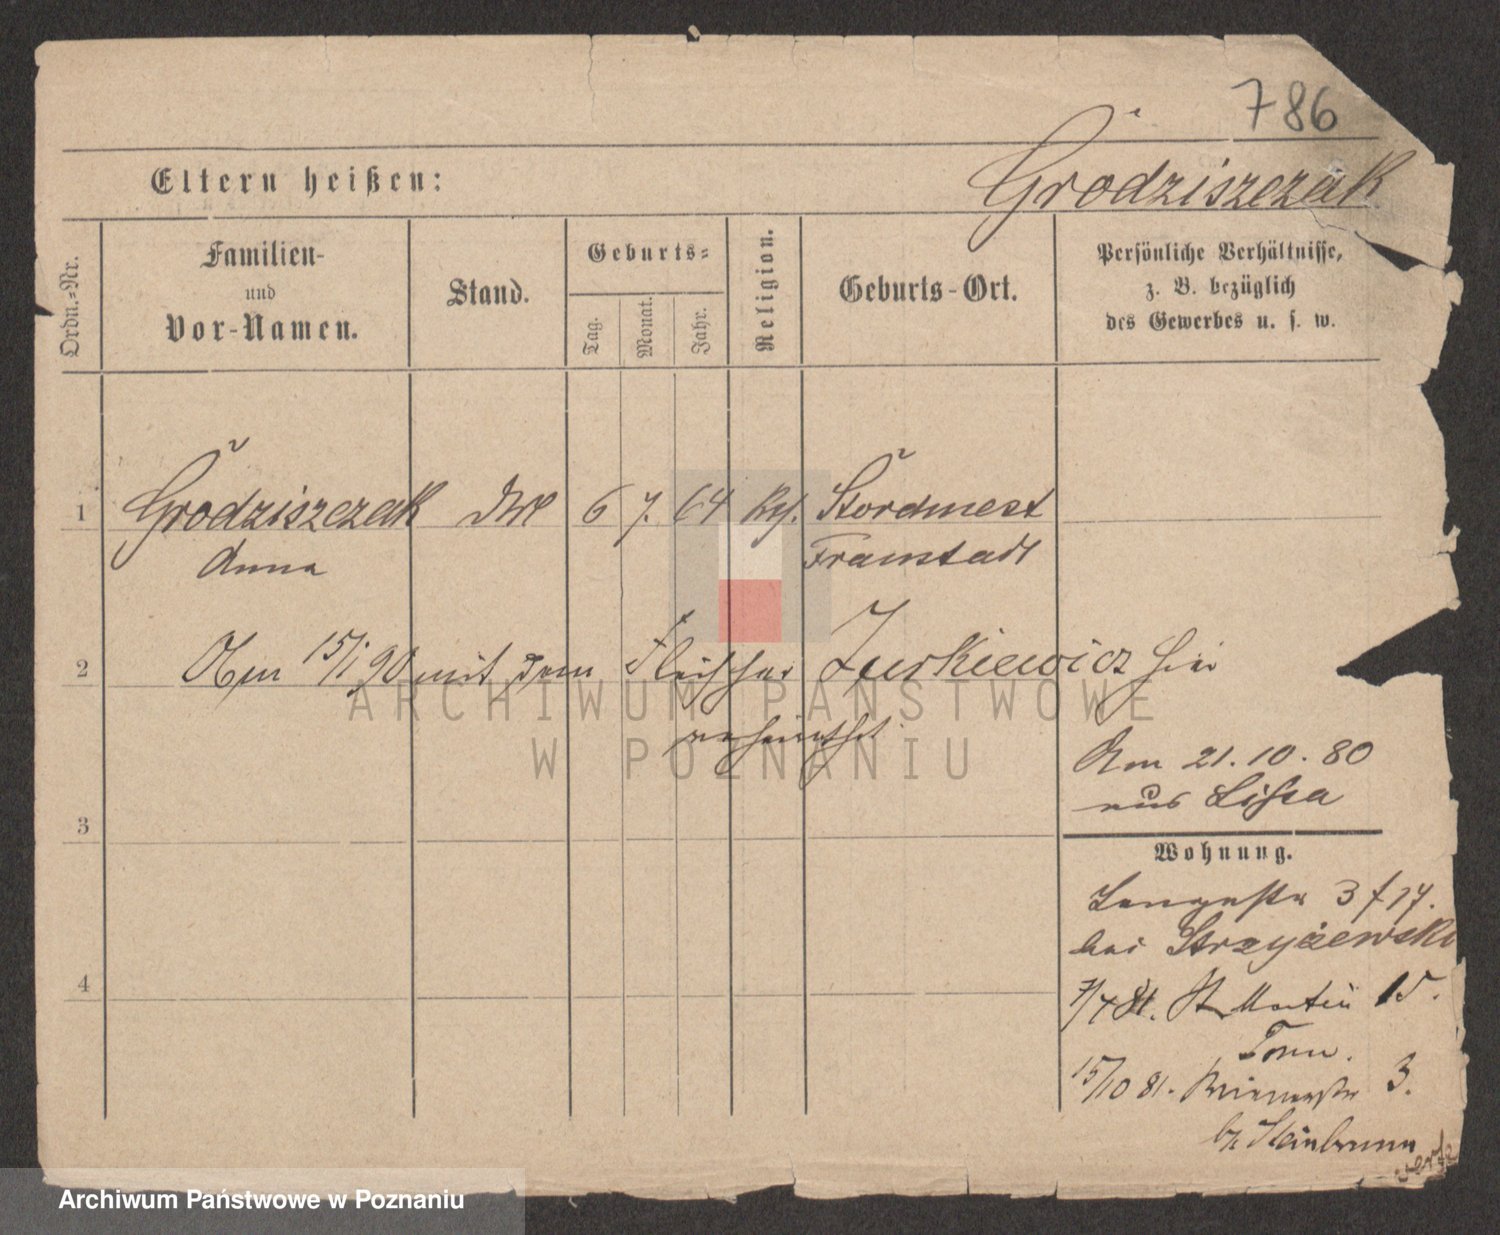 786
Eltern heißen:
Grodziszczak
Ordn.-Nr.
Familien-
und
Vor-Namen.
Stand.
Geburts-
Tag.
Monat.
Jahr.
Religion.
Geburts-Ort.
Persönliche Verhältnisse,
z. B. bezüglich
des Gewerbes u. s. w.
1 Grodziszczak 6 7. 64
Anna Fraustadt
2 Am 15/1 90 mit dem Fleischer Zurkiewicz hier
verheirathet
ARCHIWUM PAŃSTWOWE
W POZNANIU
Am 21. 10. 80
aus Lissa
3
Wohnung.
Langestr 3
bei Strzyżewski
4
7/4 81. St Martin 15.
15/10 81. 3.
Archiwum Państwowe w Poznaniu